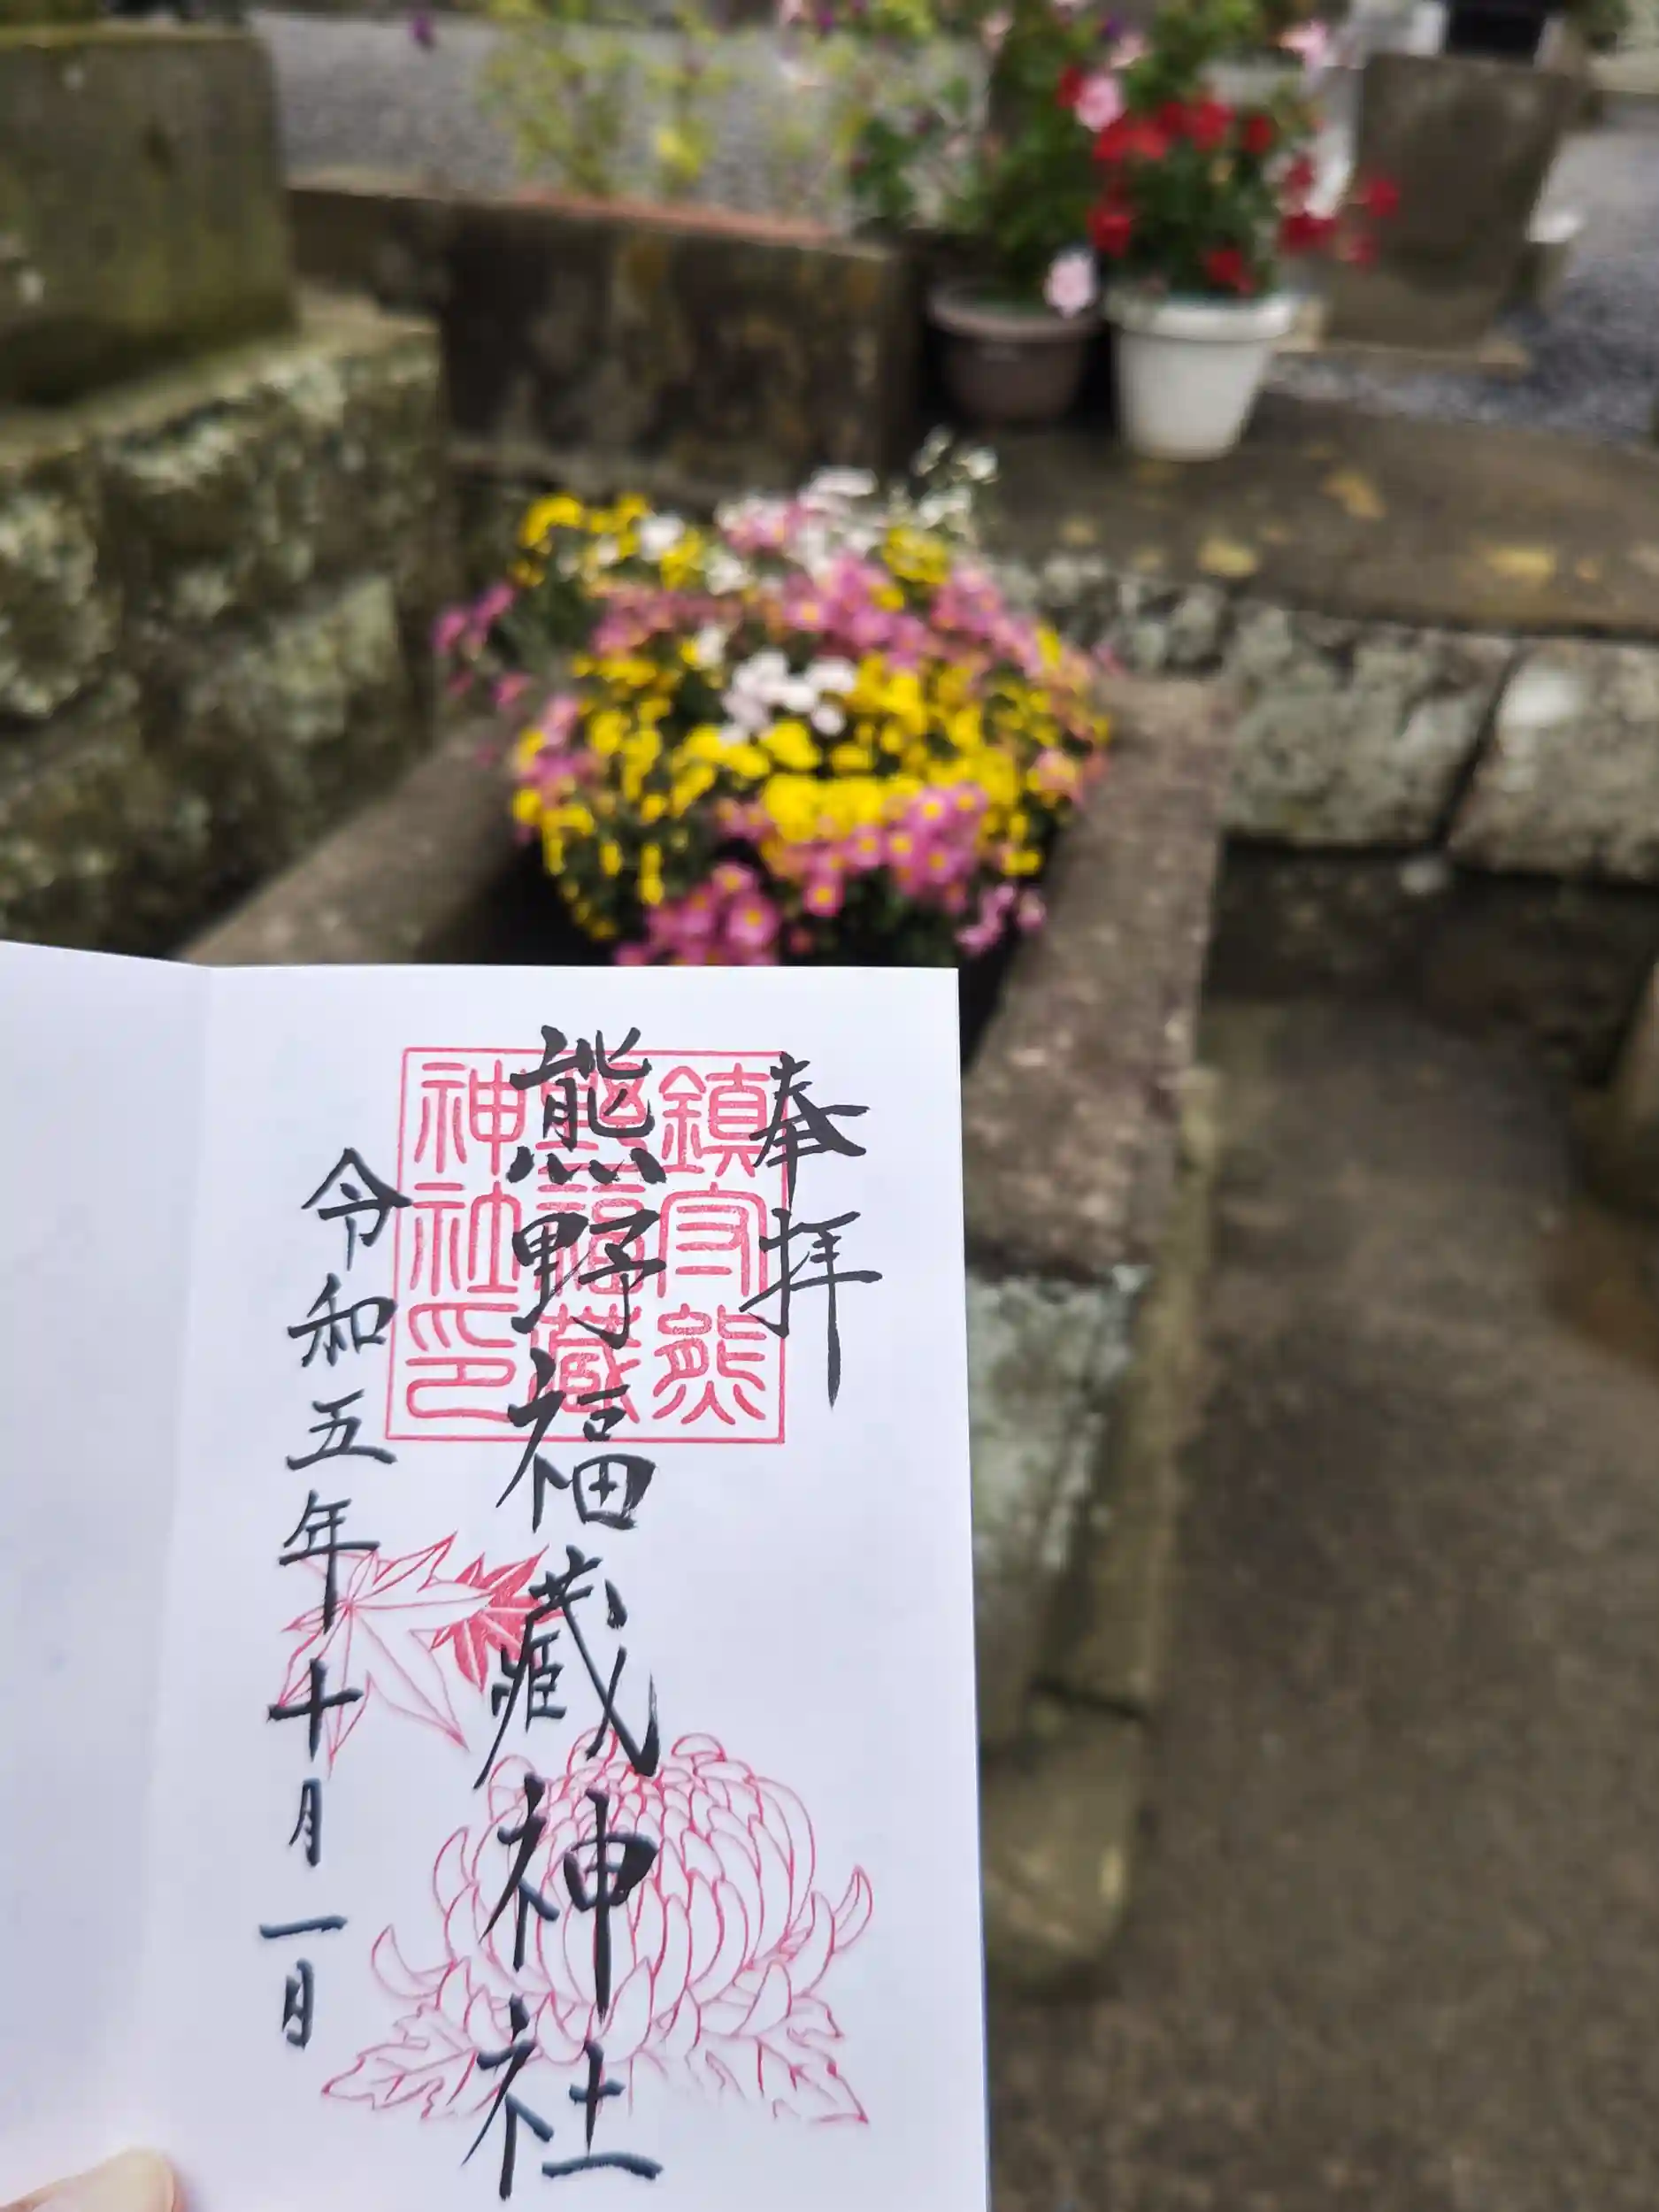 奉拝
熊野福藏神社
令和五年十月一日
鎮守熊
野福藏
神社印